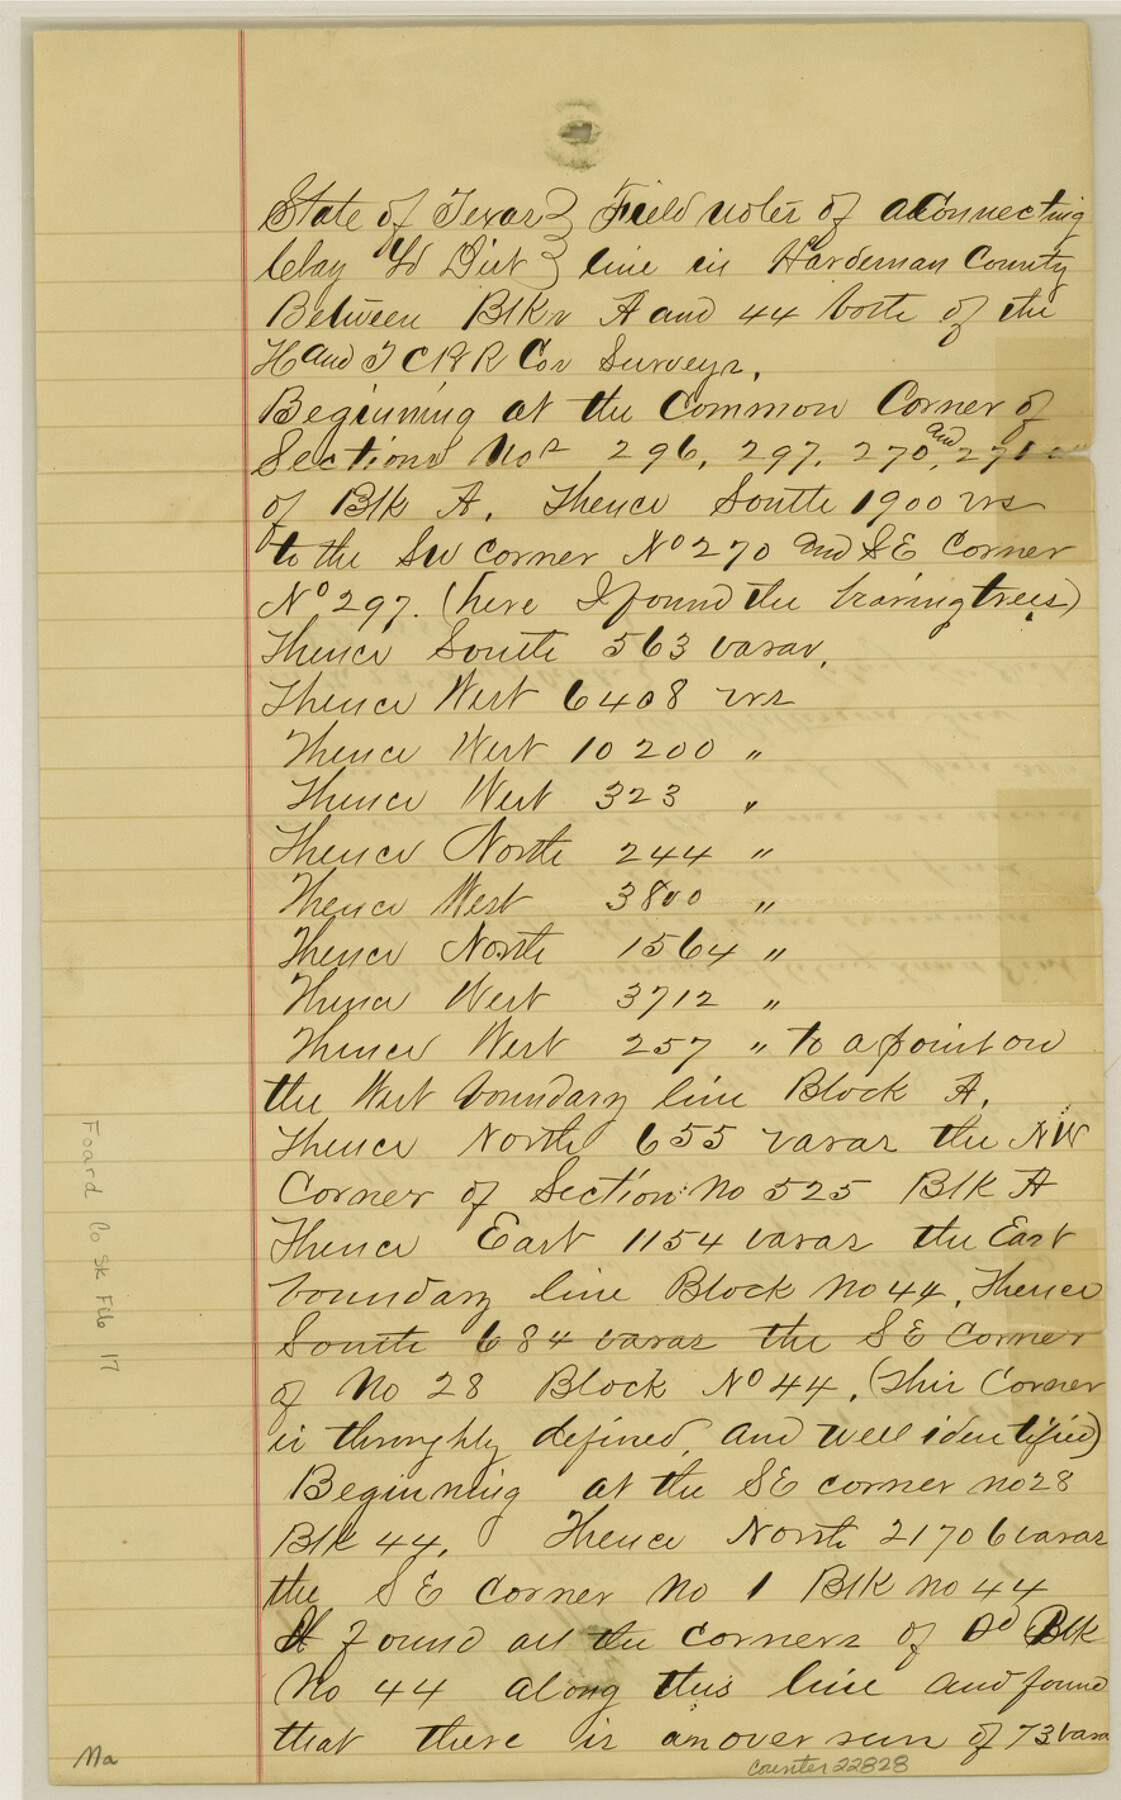 State of Texas } Field notes of a Connecting
Clay Ld Dist } line in Hardeman County
Between Blks A and 44 both of the
H and T C R R Cos Surveys.
Beginning at the Common Corner of
Sections Nos 296, 297, 270, and 271
of Blk A. Thence South 1900 vrs
to the SW Corner No 270 and SE Corner
No 297. (here I found the bearing trees)
Thence South 563 varas,
Thence West 6408 vrs
Thence West 10200 "
Thence West 323 "
Thence North 244 "
Thence West 3800 "
Thence North 1564 "
Thence West 3712 "
Thence West 257 " to a point on
the West boundary line Block A.
Thence North 655 varas the NW
Corner of Section No 525 Blk A
Thence East 1154 varas the East
boundary line Block No 44, Thence
South 684 varas the SE Corner
of No 28 Block No 44, (this Corner
is throughly defined, and well identified)
Beginning at the SE corner no 28
Blk 44, Thence North 21706 varas
the SE Corner No 1 Blk no 44
I found all the corners of Sd Blk
No 44 along this line and found
that there is an over run of 73 vara
Foard Co Sk File 17
Ma
counter 22828